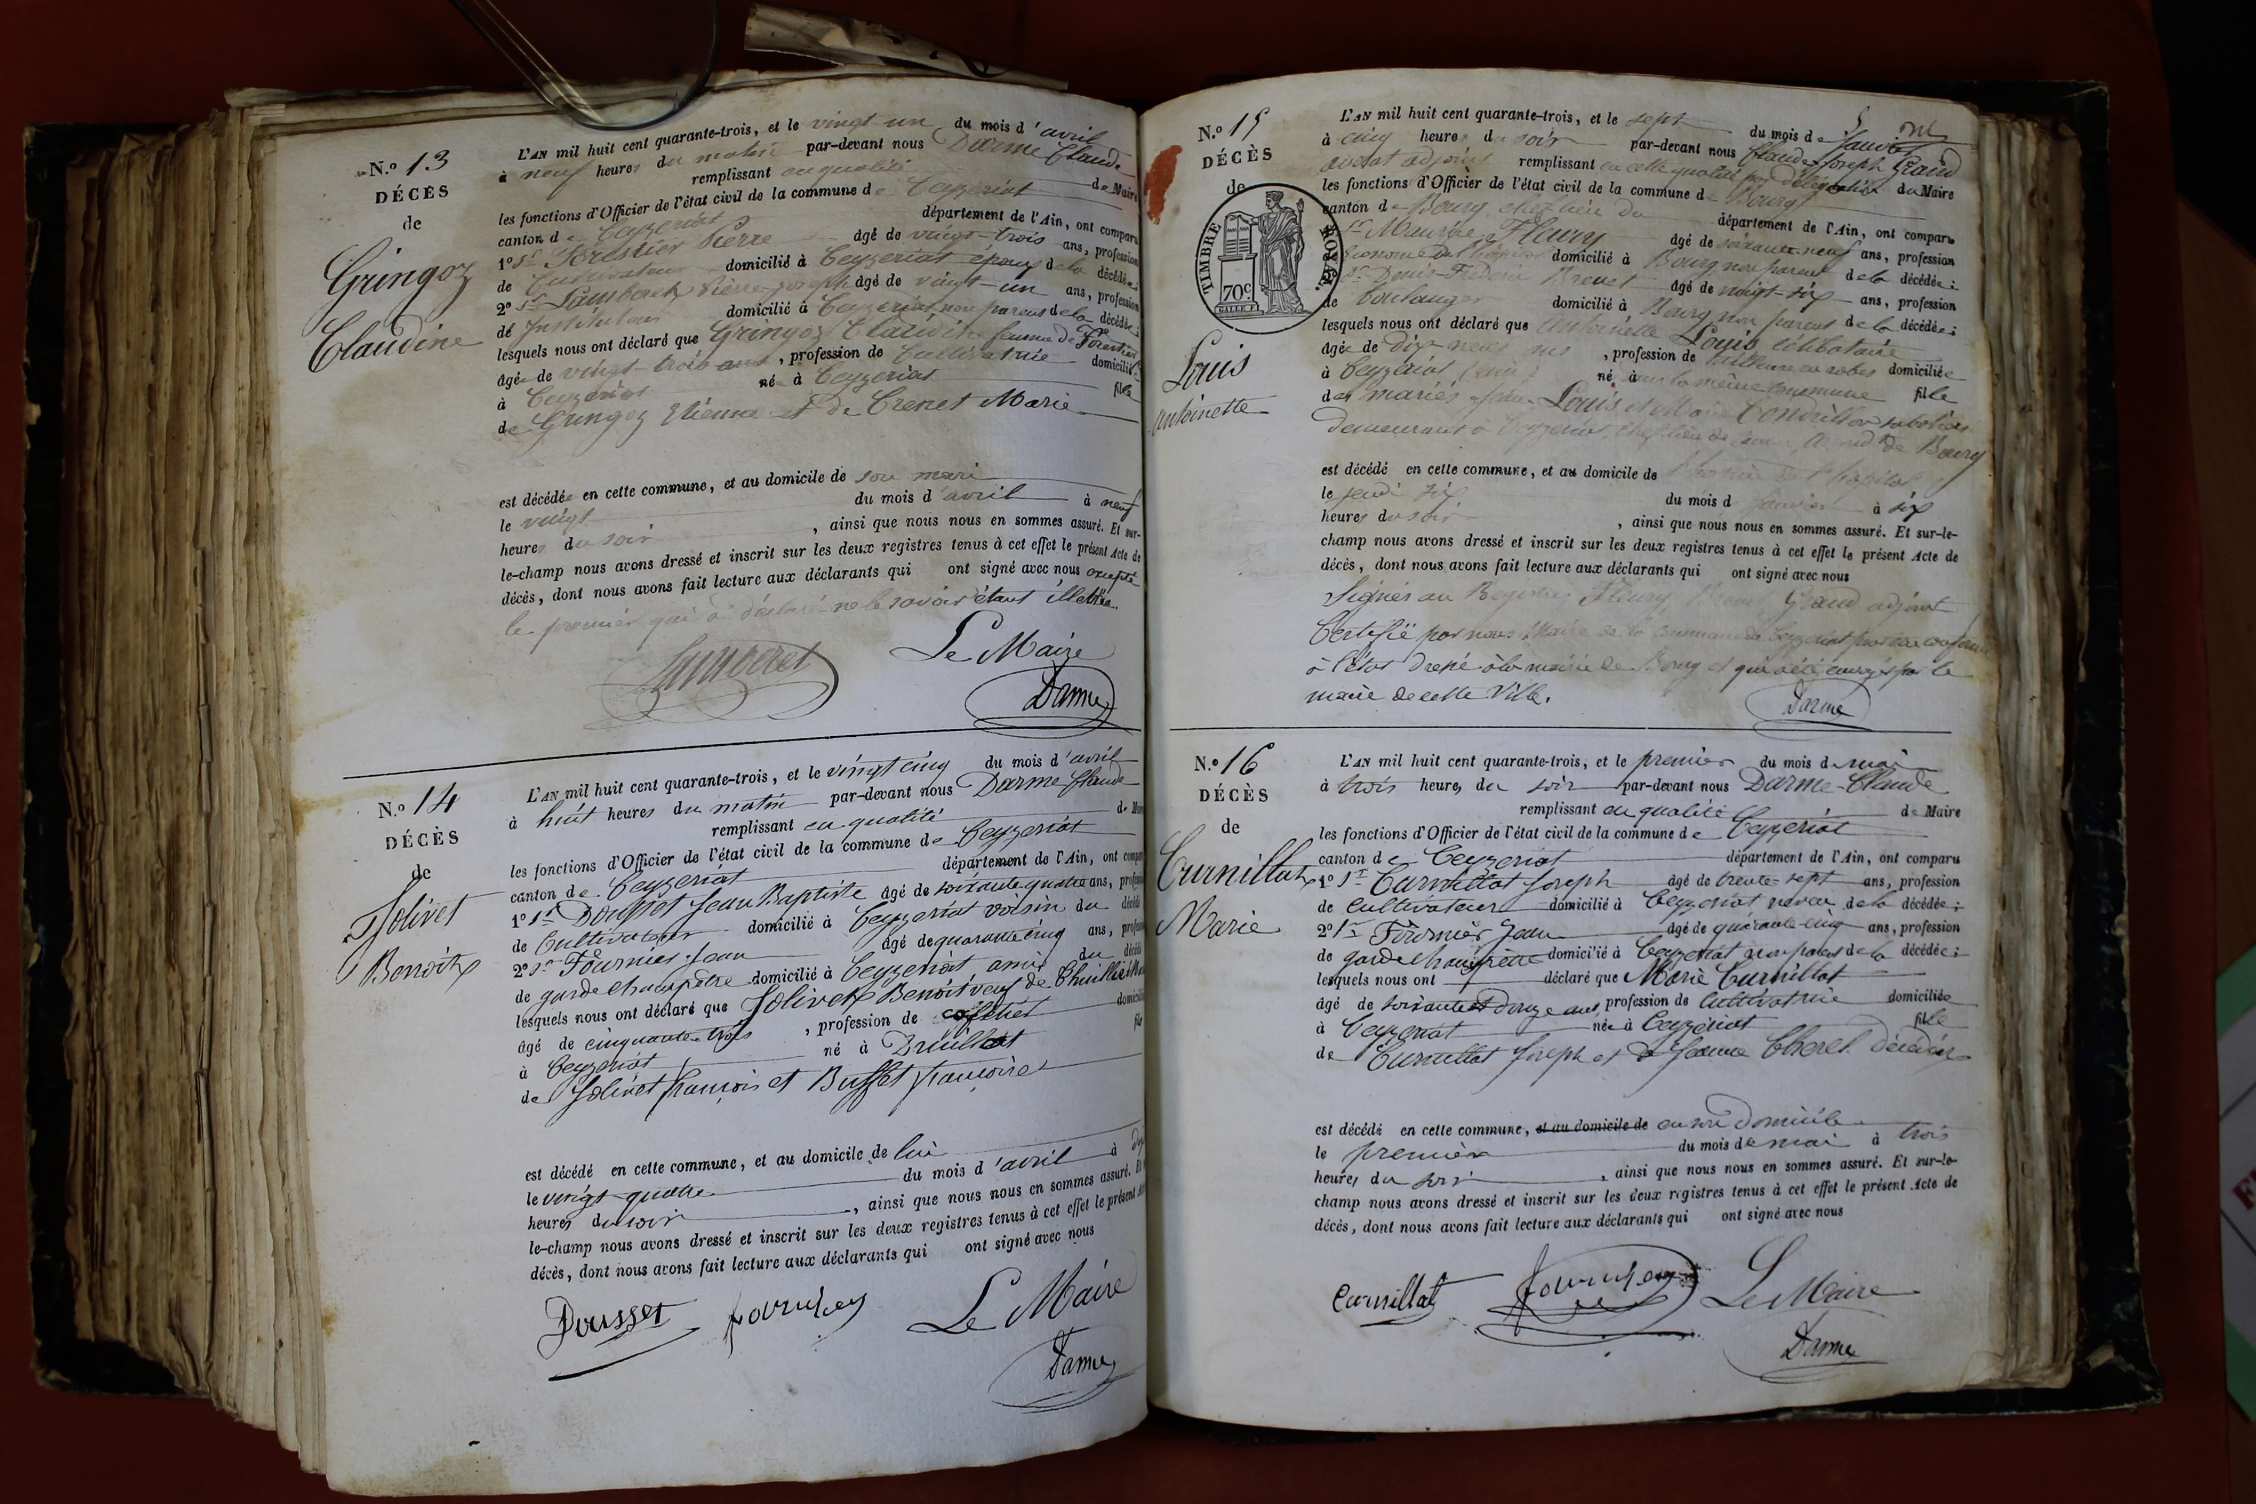 N.º 13
DÉCÈS
de
Gringoz
Claudine
L'AN mil huit cent quarante-trois, et le vingt un du mois d'avril
à neuf heures du matin par-devant nous Darme Claude
remplissant en qualité de Maire
les fonctions d'Officier de l'état civil de la commune de Ceyzeriat
canton de Ceyzeriat département de l'Ain, ont comparu
1º Sr Forestier Pierre âgé de vingt-trois ans, profession
de Cultivateur domicilié à Ceyzeriat époux de la décédée;
2º Sr Lamberet Pierre-Joseph âgé de vingt-un ans, profession
de Instituteur domicilié à Ceyzeriat non parent de la décédée;
lesquels nous ont déclaré que Gringoz Claudine femme de Forestier
âgée de vingt-trois ans, profession de Cultivatrice domiciliée
à Ceyzeriat né à Ceyzeriat fille
de Gringoz Etienne et de Crenet Marie
est décédée en cette commune, et au domicile de son mari
le vingt du mois d'avril à neuf
heures du soir, ainsi que nous nous en sommes assuré. Et sur-
le-champ nous avons dressé et inscrit sur les deux registres tenus à cet effet le présent Acte de
décès, dont nous avons fait lecture aux déclarants qui ont signé avec nous excepté
le premier qui a déclaré ne le savoir étant illetré.
Lamberet Le Maire
Darme
N.º 14
DÉCÈS
de
Jolivet
Benoit
L'AN mil huit cent quarante-trois, et le vingt cinq du mois d'avril
à huit heures du matin par-devant nous Darme Claude
remplissant en qualité de Maire
les fonctions d'Officier de l'état civil de la commune de Ceyzeriat
canton de Ceyzeriat département de l'Ain, ont comparu
1º Sr Dousset Jean Baptiste âgé de soixante quatre ans, profession
de Cultivateur domicilié à Ceyzeriat voisin du décédé
2º Sr Fournier Jean âgé de quarante cinq ans, profession
de garde champêtre domicilié à Ceyzeriat ami du décédé
lesquels nous ont déclaré que Jolivet Benoit veuf de
âgé de cinquante-trois, profession de domicilié
à Ceyzeriat né à Druillat fils
de Jolivet françois et Buffet françoise
est décédé en cette commune, et au domicile de lui
le vingt-quatre du mois d'avril à
heures du soir, ainsi que nous nous en sommes assuré. Et
le-champ nous avons dressé et inscrit sur les deux registres tenus à cet effet le présent
décès, dont nous avons fait lecture aux déclarants qui ont signé avec nous
Dousset fournier Le Maire
Darme
N.º 15
DÉCÈS
de
TIMBRE ROYAL.
70c
Louis
Antoinette
L'AN mil huit cent quarante-trois, et le sept du mois de Janvier
à cinq heures du soir par-devant nous Claude Joseph Grand
avocat adjoint remplissant en cette qualité par délégation du Maire
les fonctions d'Officier de l'état civil de la commune de Bourg
canton de Bourg chef lieu du département de l'Ain, ont comparu
Sr Maurice Fleury âgé de soixante-neuf ans, profession
économe de l'hôpital domicilié à Bourg non parent de la décédée;
Sr Denis Brevet âgé de vingt-six ans, profession
de boulanger domicilié à Bourg non parent de la décédée;
lesquels nous ont déclaré que Antoinette Louis célibataire
âgée de dix neuf ans, profession de tailleuse en robes domiciliée
à Ceyzeriat (ain) né dans la même commune fille
des mariés Louis et Marie sabotiers
demeurant à Ceyzeriat, chef lieu de canton, de Bourg
est décédé en cette commune, et au domicile de l'hôpital
le jeudi six du mois de janvier à six
heures du soir, ainsi que nous nous en sommes assuré. Et sur-le-
champ nous avons dressé et inscrit sur les deux registres tenus à cet effet le présent Acte de
décès, dont nous avons fait lecture aux déclarants qui ont signé avec nous
Signés au Registre Fleury, Grand adjoint
Certifié par nous Maire de la Commune de Ceyzeriat
à l'état dressé à la mairie de Bourg et qui a été envoyé par le
maire de cette Ville.
Darme
N.º 16
DÉCÈS
de
Curnillat
Marie
L'AN mil huit cent quarante-trois, et le premier du mois de mai
à trois heures du soir par-devant nous Darme Claude
remplissant en qualité de Maire
les fonctions d'Officier de l'état civil de la commune de Ceyzeriat
canton de Ceyzeriat département de l'Ain, ont comparu
1º Sr Curnillat Joseph âgé de trente-sept ans, profession
de Cultivateur domicilié à Ceyzeriat neveu de la décédée;
2º Sr Fournier Jean âgé de quarante-cinq ans, profession
de garde champêtre domicilié à Ceyzeriat non parent de la décédée;
lesquels nous ont déclaré que Marie Curnillat
âgé de soixante et douze ans, profession de Cultivatrice domiciliée
à Ceyzeriat née à Ceyzeriat fille
de Curnillat Joseph et de Jeanne Cheret décédés
est décédé en cette commune, et au domicile de en son domicile
le premier du mois de mai à trois
heures du soir, ainsi que nous nous en sommes assuré. Et sur-le-
champ nous avons dressé et inscrit sur les deux registres tenus à cet effet le présent Acte de
décès, dont nous avons fait lecture aux déclarants qui ont signé avec nous
Curnillat fournier Le Maire
Darme